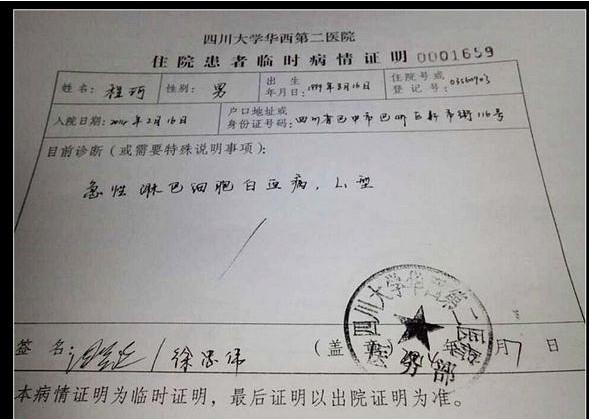 四川大学华西第二医院
住院患者临时病情证明 0001659
姓名: 程珂 性别: 男 出生年月日: 1999年8月16日 住院号或登记号:
入院日期: 2014年2月16日 户口地址或身份证号码: 四川省巴中市巴州区新市街116号
目前诊断（或需要特殊说明事项）:
急性淋巴细胞白血病, L1型
签名: / 徐 (盖章) 年 月 7 日
四川大学华西第二医院
医务部
本病情证明为临时证明，最后证明以出院证明为准。